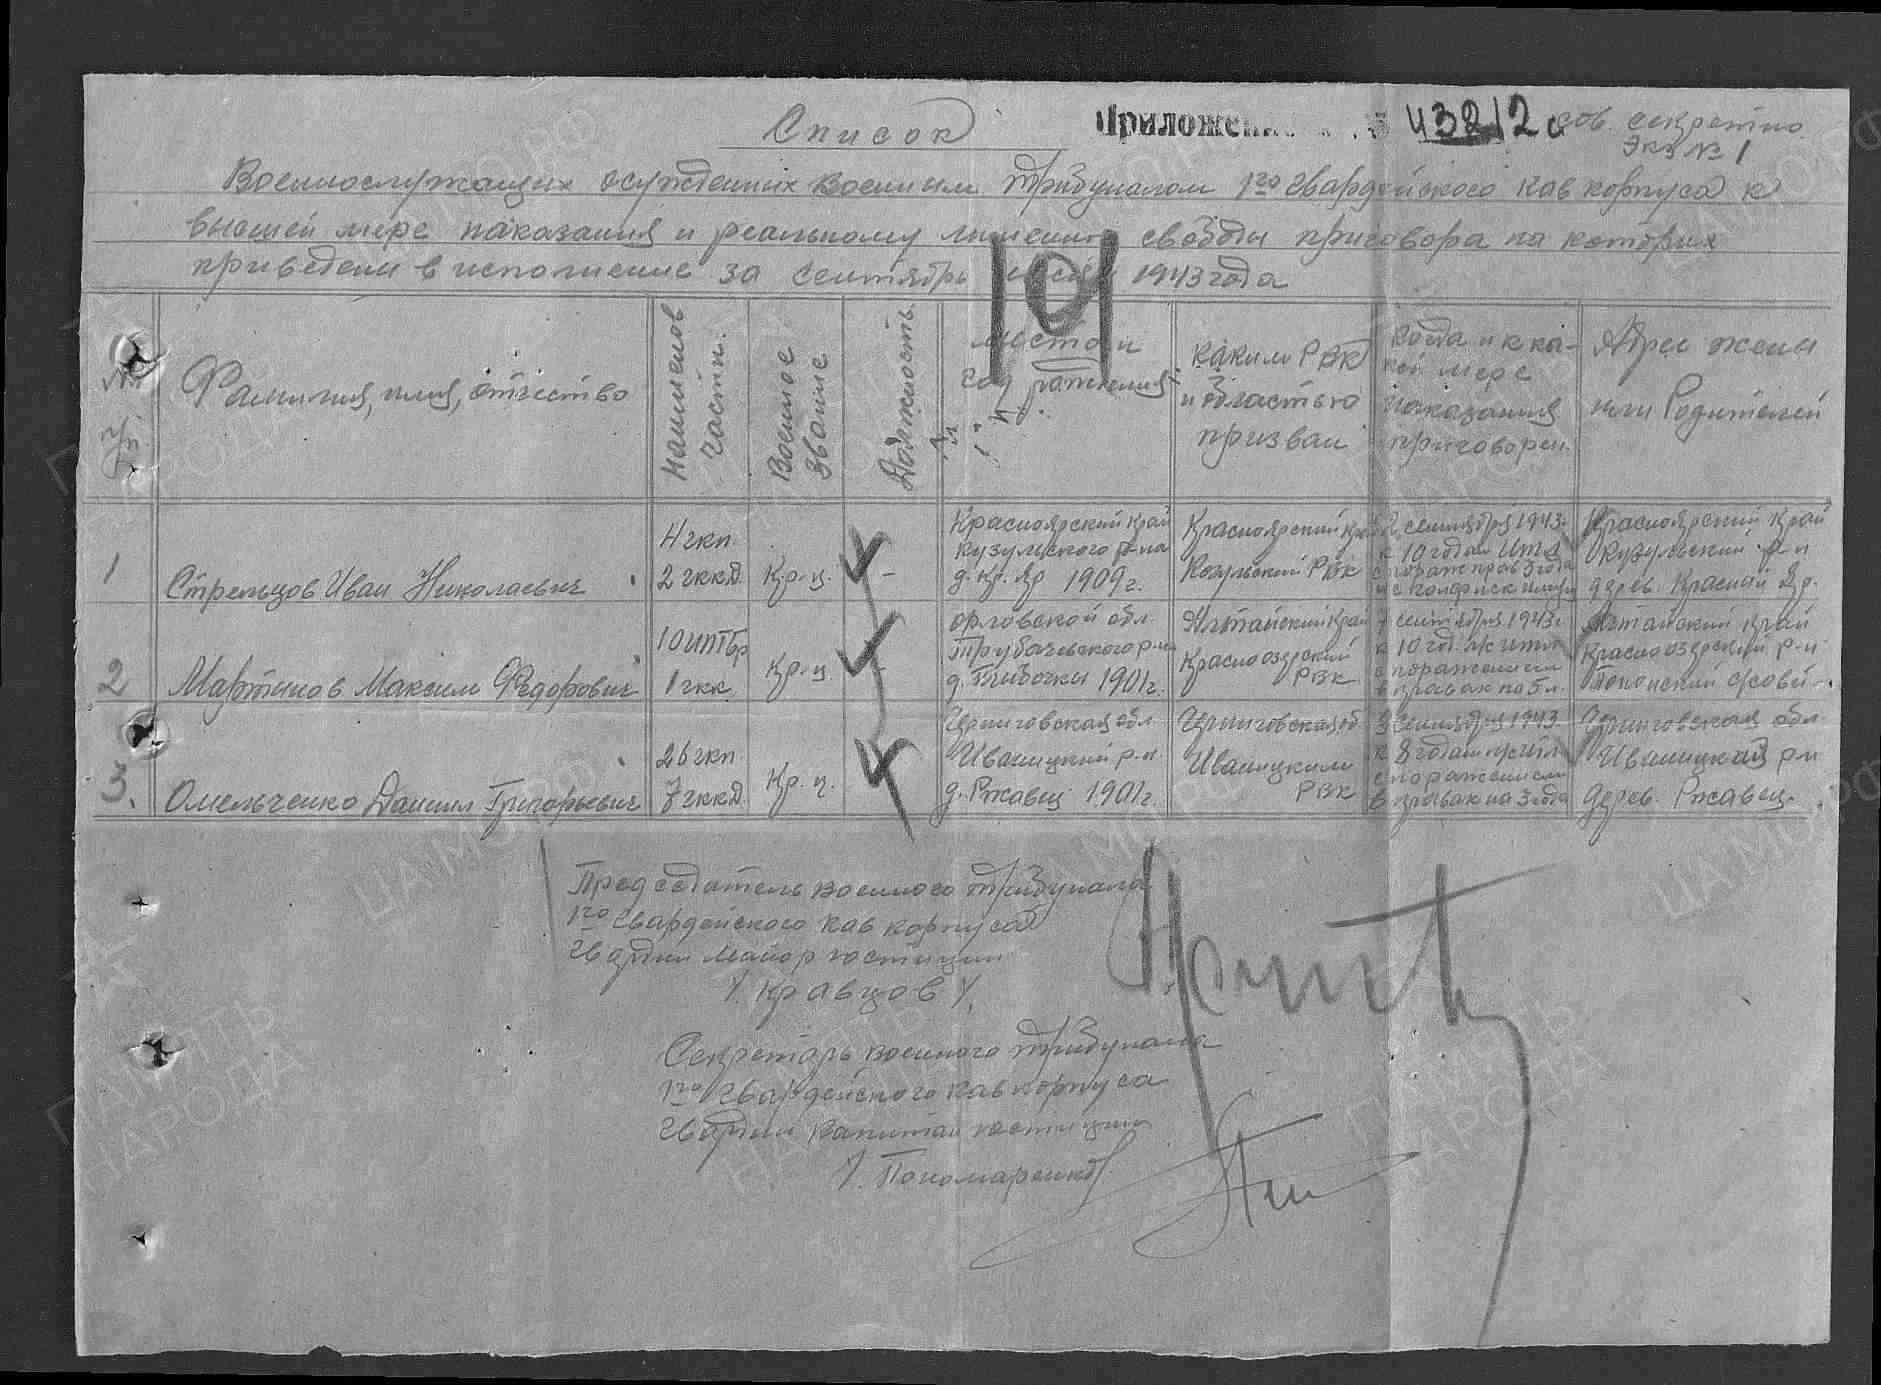 Список
Приложение
4382/2с
Сов. секретно
Экз № 1
Военнослужащих осужденных Военным Трибуналом 1го Гвардейского Кав корпуса к
высшей мере наказания и реальному лишению свободы приговора на которых
приведены в исполнение за сентябрь 1943 года
101
№ п/п.
Фамилия, имя, отчество
Наименов части.
Военное звание
Должность.
место и
год рождения
каким РВК
и областью
призван
когда и к ка-
кой мере
наказания
приговорен.
Адрес жены
или Родителей
1
Стрельцов Иван Николаевич
4 гкп.
2 гккд
Кр-ц.
-
Красноярский край
Кузульского р-на
д. Кр. Яр 1909 г.
Красноярский край
Козульский РВК
2 сентября 1943г.
к 10 годам ИТЛ
с пораж прав 3 года
Красноярский край
Кузульский р-н
дерев. Красный Яр.
2
Мартынов Максим Федорович
10 иптбр
1 гкк
Кр-ц.
-
Орловской обл.
Трубачевского р-на
д. Глыбочки 1901 г.
Алтайский край
Красноозерский
РВК
7 сентября 1943г
к 10 год. л/с ИТЛ
с поражением
в правах на 5 л.
Алтайский край
Краснозерский р-н
3.
Омельченко Даниил Григорьевич
26 гкп
7 гккд
Кр-ц.
Черниговская обл
Иваницкий р-н
д. Ржавец 1901 г.
Черниговская об.
Иваницким
РВК
9 сентября 1943
к 8 годам л/с ИТЛ
с поражением
в правах на 3 года
Черниговская обл
Иваницкий р-н
дерев. Ржавец.
Председатель военного трибунала
1го гвардейского кав корпуса
гвардии майор юстиции
/. Кравцов /.
Секретарь военного трибунала
1го гвардейского кав корпуса
гвардии капитан юстиции
/. Пономаренко/.
ПАМЯТЬ НАРОДА
ЦАМО.РФ